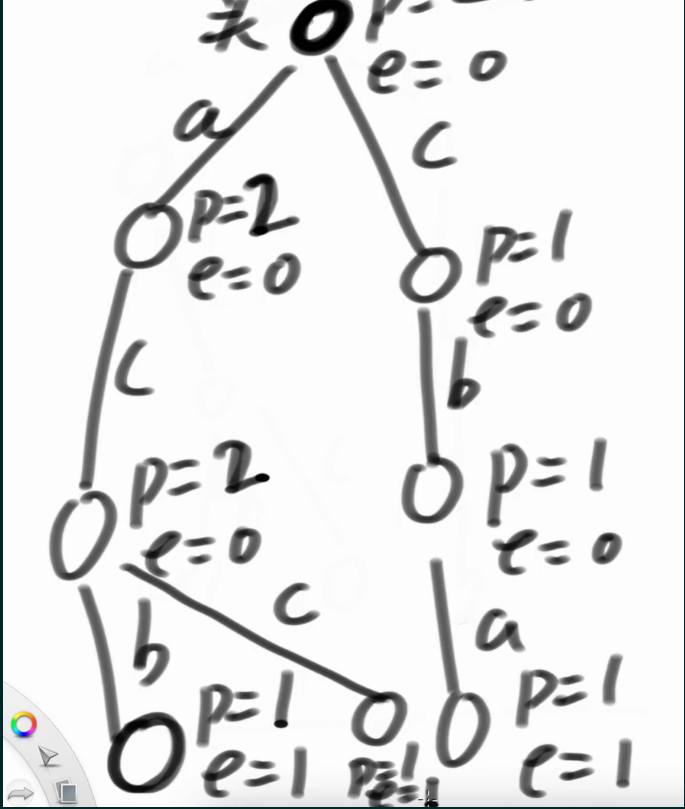 e=0
a
c
p=2
e=0
p=1
e=0
c
b
p=2
e=0
p=1
e=0
c
b
a
p=1
e=1
p=1
p=1
e=1